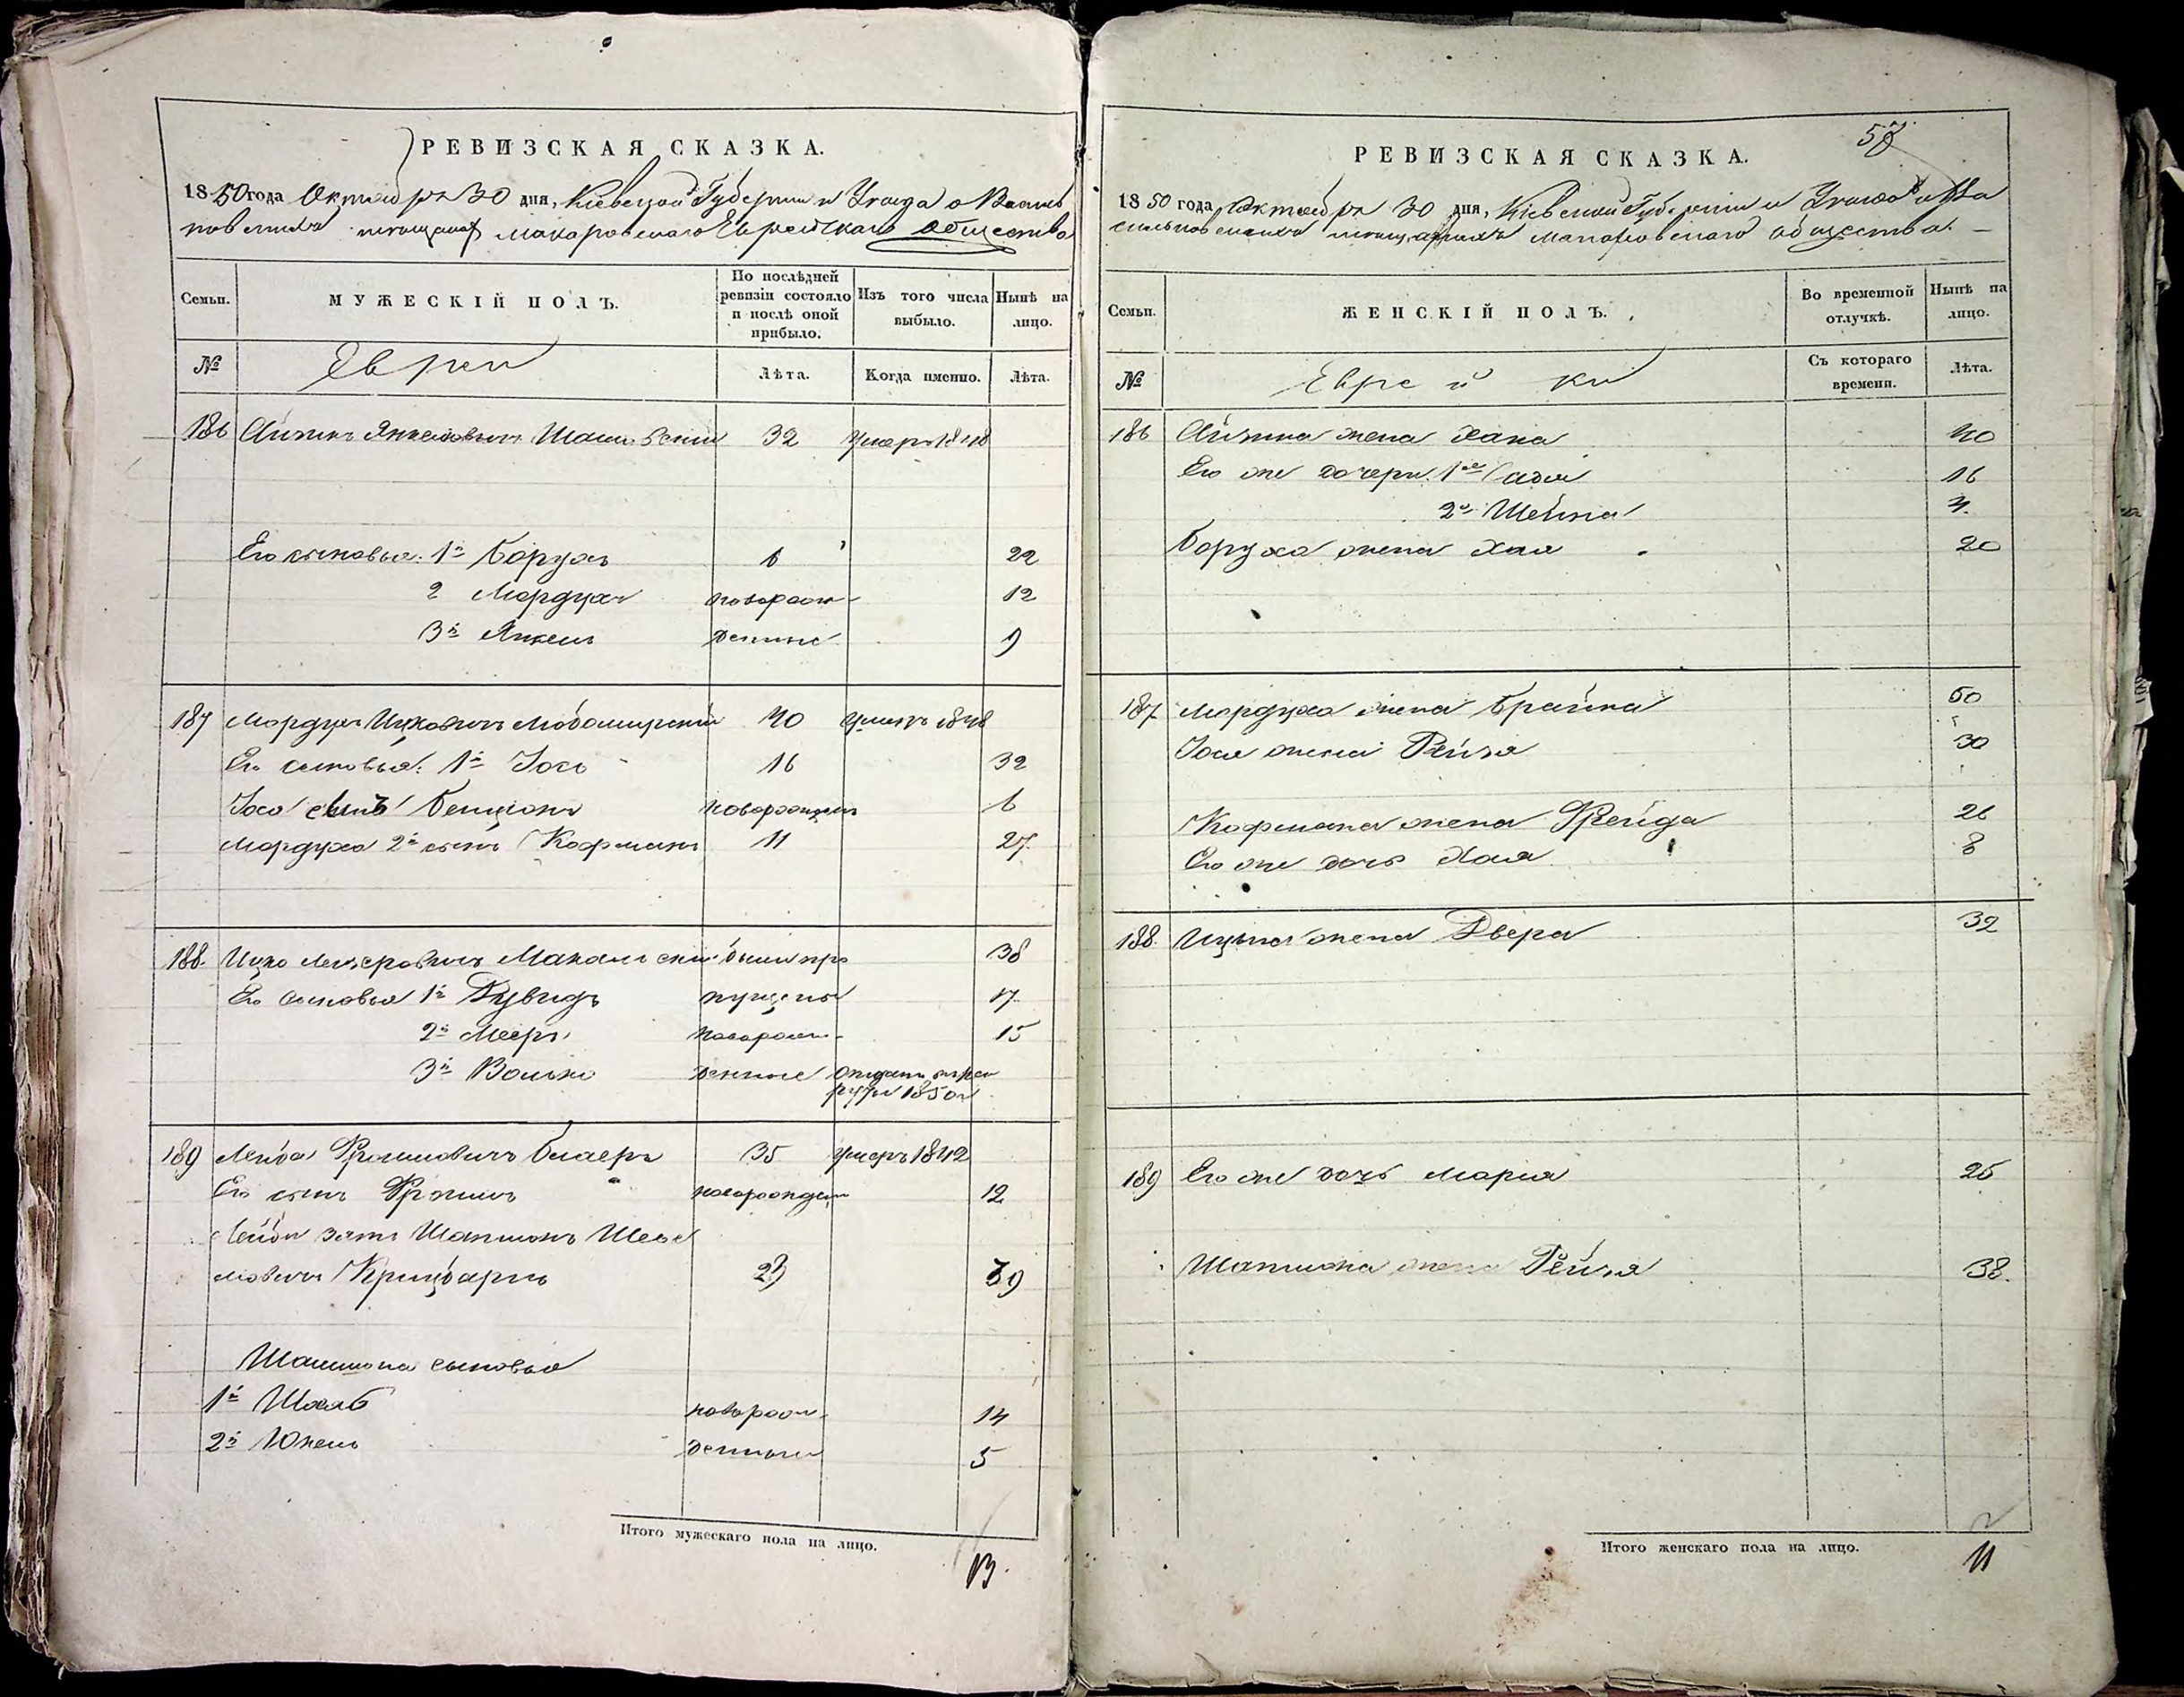 РЕВИЗСКАЯ СКАЗКА.
1850 года Октября 30 дня, Кіевской Губерніи и Уезда о Василь
ковскихъ мещанахъ Макаровскаго Еврейскаго Общества
Семьи.
МУЖЕСКІЙ ПОЛЪ.
По послѣдней
ревизіи состояло
и послѣ оной
прибыло.
Изъ того числа
выбыло.
Нынѣ на
лицо.
№
Евреи
Лѣта.
Когда именно.
Лѣта.
186 Айзикъ Янкелевичъ 32 умеръ 1848
Его сыновья: 1й Борухъ 6 22
2 Мордухъ новорож- 12
3й Янкель денные 9
187 Мордухъ Ицковичъ 40 умеръ 1848
Его сыновья: 1й Іось 16 32
Іося сынъ Бенціонъ новорожденъ 6
Мордуха 2й сынъ Кофманъ 11 27
188. Ицко Лейзеровичъ были про 38
Его сыновья 1й Дувидъ пущены 17
2й Мееръ новорож- 15
3й Волько денные отданъ въ рек
руты 1850 г.
189 Лейба Фроимовичъ 35 умеръ 1842
Его сынъ Фроимъ новорожден 12
Лейбы зять Шапшонъ Шевел
мовичъ 23 39
Шапшона сыновья
1й новорож- 14
2й Юкель денные 5
Итого мужескаго пола на лицо.
13.
57
РЕВИЗСКАЯ СКАЗКА.
1850 года Октября 30 дня, Кіевской Губерніи и Уезда о Ва
сильковскихъ мещанахъ Макаровскаго общества. —
Семьи.
ЖЕНСКІЙ ПОЛЪ.
Во временной
отлучкѣ.
Нынѣ на
лицо.
№
Еврейки
Съ котораго
времени.
Лѣта.
186 Айзика жена Хана 40
Его же дочери: 1ая 16
2я Шейна 4.
Боруха жена Хая 20
187. Мордуха жена Брайна 50
Іося жена Рейзя 30
Кофмана жена Фрейда 26
Его же дочь Хая 8
188. Ицька жена Двера 32
189 Его же дочь Марія 25
Шапшона жена Рейзя 38.
Итого женскаго пола на лицо.
11